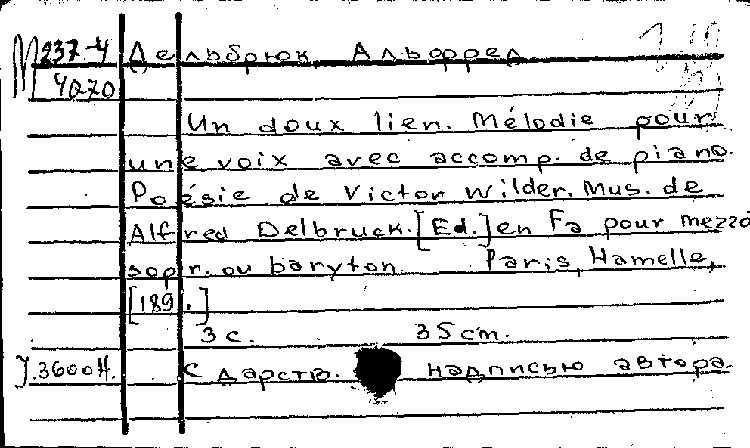 М 237-4 Дельбрюк, Альфред
4070
Un doux lien. Mélodie pour
une voix avec accomp. de piano.
Poésie de Victor Wilder. Mus. de
Alfred Delbruck. [Ed.] en Fa pour mezzo
sopr. ou baryton Paris, Hamelle,
[189.]
3 с. 35 cm.
J.3600H. С дарств. надписью автора.